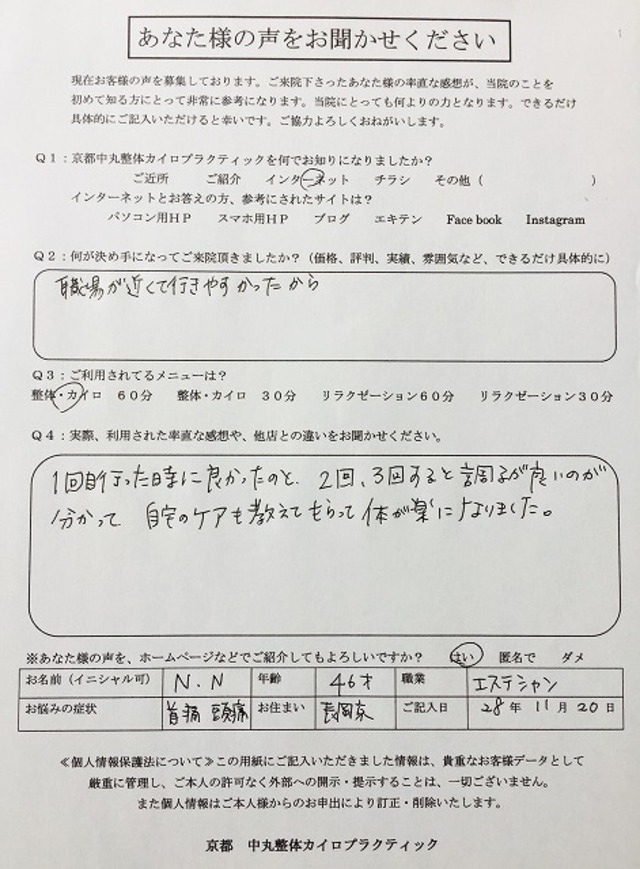 あなた様の声をお聞かせください
1
現在お客様の声を募集しております。ご来院下さったあなた様の率直な感想が、当院のことを
初めて知る方にとって非常に参考になります。当院にとっても何よりの力となります。できるだけ
具体的にご記入いただけると幸いです。ご協力よろしくおねがいします。
Q1：京都中丸整体カイロプラクティックを何でお知りになりましたか？
ご近所 ご紹介 インターネット チラシ その他（ ）
インターネットとお答えの方、参考にされたサイトは？
パソコン用HP スマホ用HP ブログ エキテン Face book Instagram
Q2：何が決め手になってご来院頂きましたか？（価格、評判、実績、雰囲気など、できるだけ具体的に）
職場が近くて行きやすかったから
Q3：ご利用されてるメニューは？
整体・カイロ 60分 整体・カイロ 30分 リラクゼーション60分 リラクゼーション30分
Q4：実際、利用された率直な感想や、他店との違いをお聞かせください。
1回目行った時に良かったのと、2回、3回すると調子が良いのが
分かって 自宅のケアも教えてもらって体が楽になりました。
※あなた様の声を、ホームページなどでご紹介してもよろしいですか？ はい 匿名で ダメ
お名前（イニシャル可） N.N 年齢 46才 職業 エステシャン
お悩みの症状 首痛 頭痛 お住まい 長岡京 ご記入日 28年 11月 20日
≪個人情報保護法について≫この用紙にご記入いただきました情報は、貴重なお客様データとして
厳重に管理し、ご本人の許可なく外部への開示・提示することは、一切ございません。
また個人情報はご本人様からのお申出により訂正・削除いたします。
京都 中丸整体カイロプラクティック